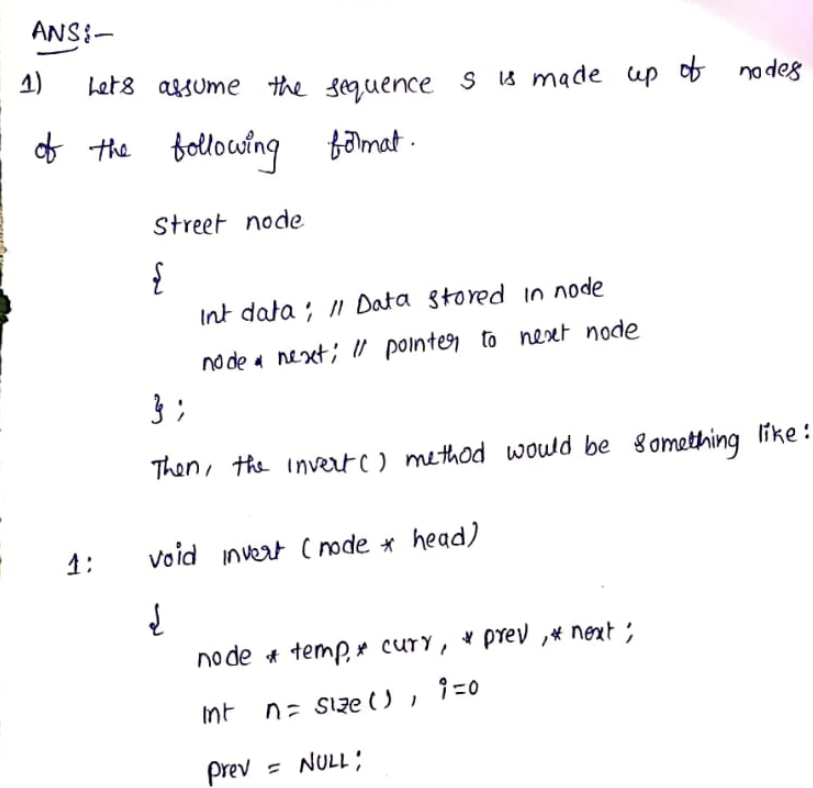 ANS:-
1) Lets assume the sequence s is made up of nodes
of the following format.
Street node
{
int data; // Data stored in node
node * next; // pointer to next node
};
Then, the invert() method would be something like:
1: void invert (node * head)
{
node * temp,* curr, * prev ,* next;
int n = size(), i=0
prev = NULL;